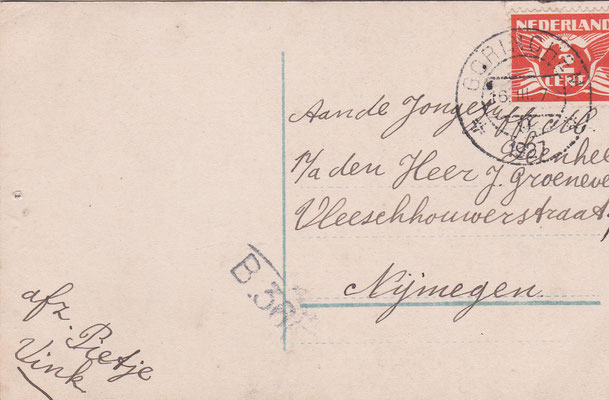 NEDERLAND
2
CENT
GORINCHEM
16. III.
1927
Aan de Jongejuffr.
p/a den Heer J. Groeneve
Vleeschhouwerstraat
Nijmegen.
B.3
afz. Pietje
Vink